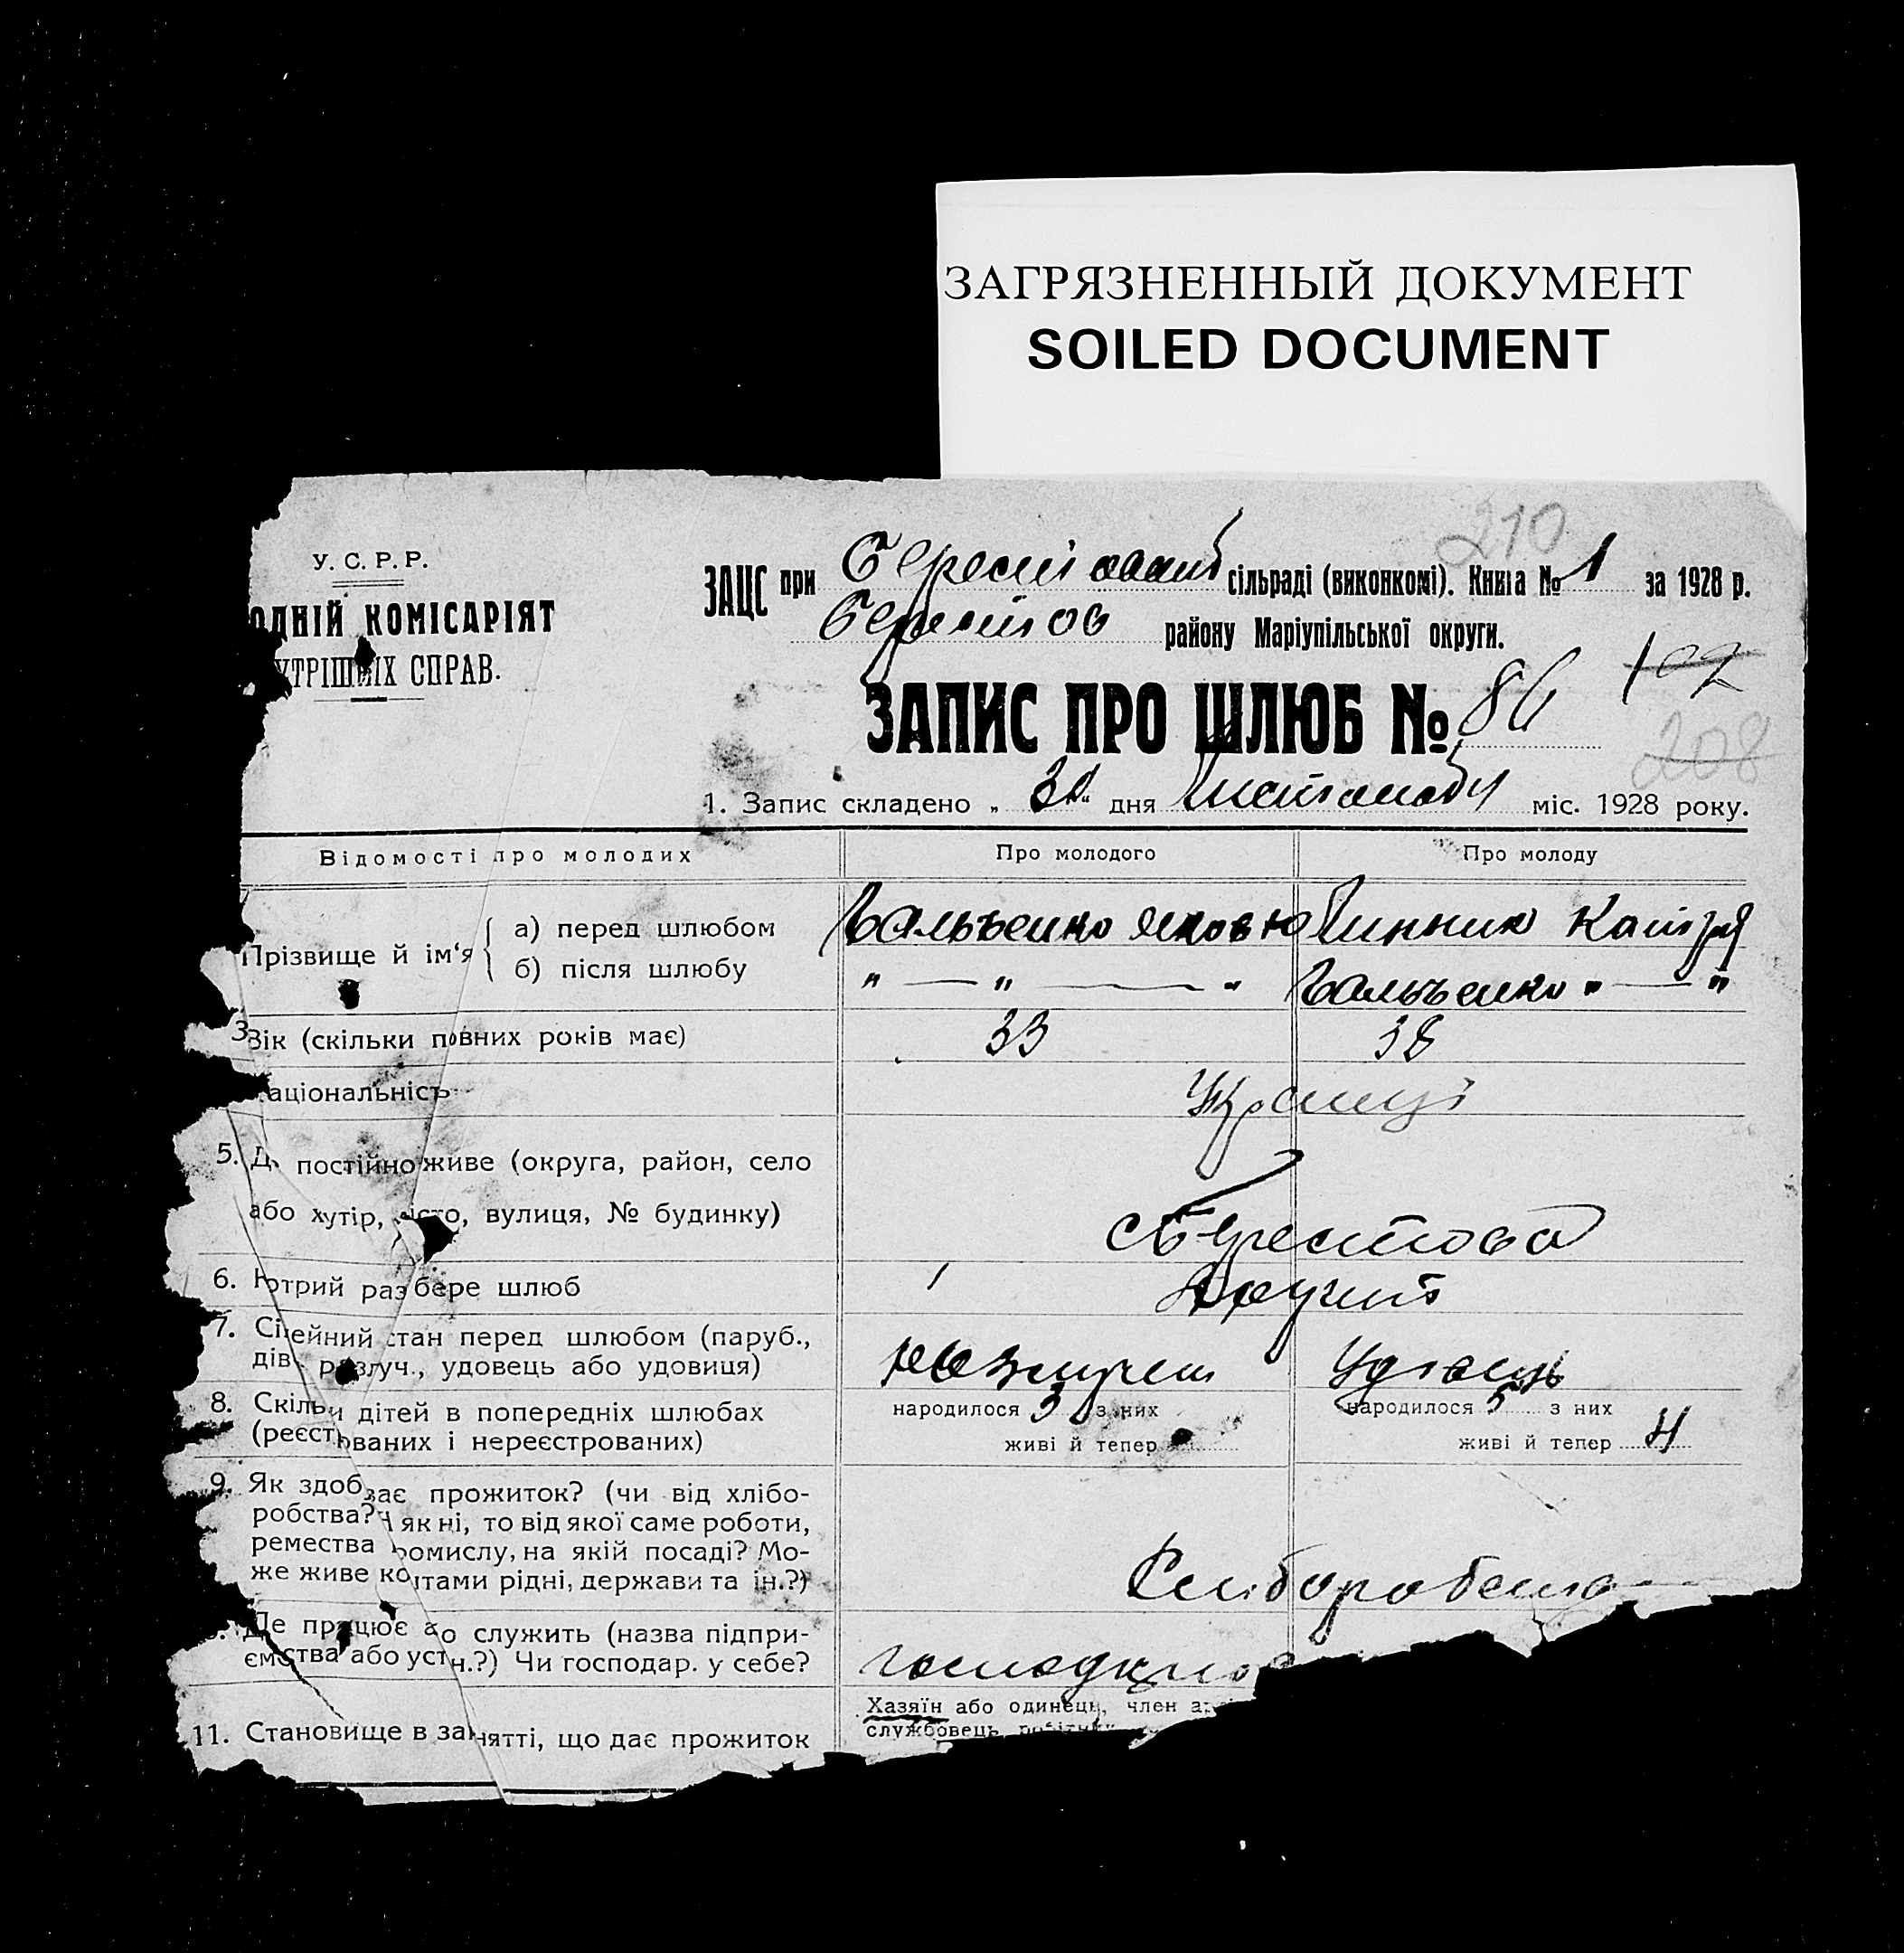 ЗАГРЯЗНЕННЫЙ ДОКУМЕНТ
SOILED DOCUMENT
210
У. С. Р. Р.
ОДНІЙ КОМІСАРІЯТ
УТРІШНІХ СПРАВ.
ЗАЦС при сільраді (виконкомі). Книга № 1 за 1928 р.
Берестов району Маріупільської округи.
102
ЗАПИС ПРО ШЛЮБ № 86
208
1. Запис складено „ “ дня Листопаду міс. 1928 року.
Відомості про молодих Про молодого Про молоду
Прізвище й ім‘я
а) перед шлюбом
б) після шлюбу
" — " — "
" — "
3 Вік (скільки повних років має) 33 38
аціональність Українці
5. Д постійно живе (округа, район, село
або хутір, місто, вулиця, № будинку)
с Берестова
6. Котрий раз бере шлюб Другий
7. Сімейний стан перед шлюбом (паруб.,
дівч розлуч., удовець або удовиця)
Удовець
8. Скільки дітей в попередніх шлюбах народилося 3 з них народилося 5 з них
(реєстрованих і нереєстрованих) живі й тепер живі й тепер 4
9. Як здобуває прожиток? (чи від хлібо-
робства? Ч як ні, то від якої саме роботи,
ремества промислу, на якій посаді? Мо-
же живе коштами рідні, держави та ін.?)
Де працює або служить (назва підпри-
ємства або устан.?) Чи господар. у себе?
11. Становище в занятті, що дає прожиток
Хазяїн або одинець, член
службовець